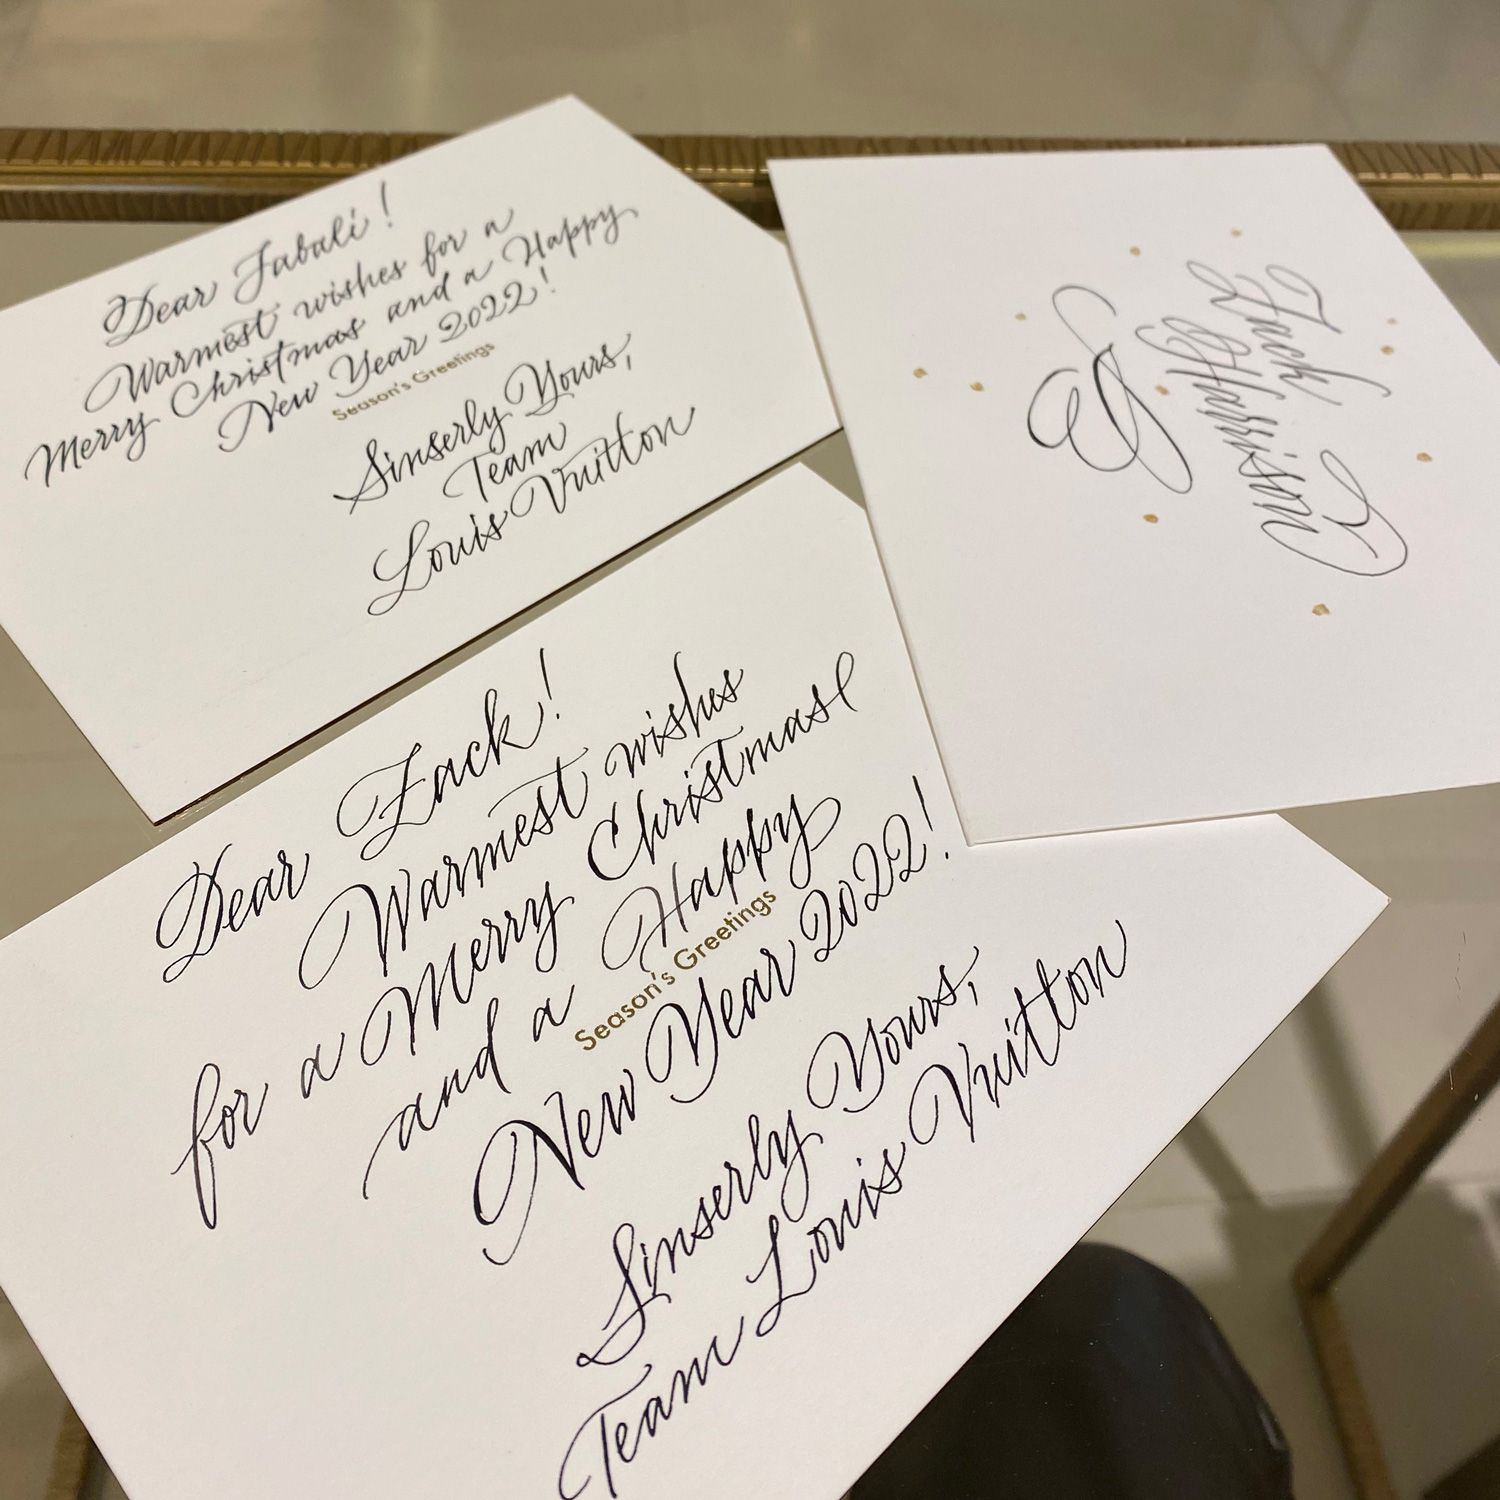 Dear Jabali!
Warmest wishes for a
Merry Christmas and a Happy
New Year 2022!
Season's Greetings
Sinserly Yours,
Team
Louis Vuitton
Zack
Harrison
Dear Zack!
Warmest wishes
for a Merry Christmas
and a Happy
Season's Greetings
New Year 2022!
Sinserly Yours,
Team Louis Vuitton